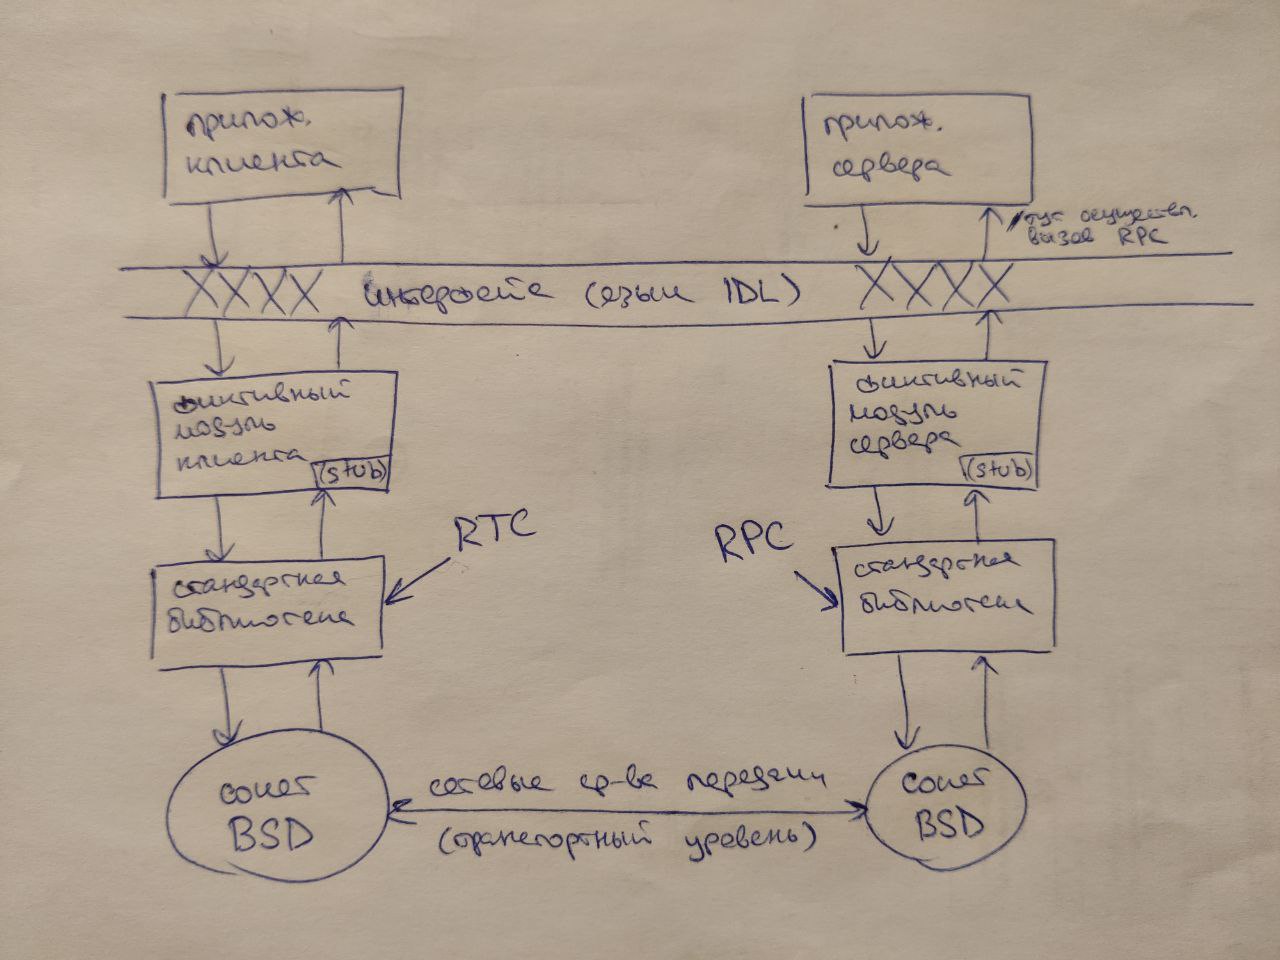 прилож.
клиента
прилож.
сервера
тут осуществл.
вызов RPC
интерфейс (язык IDL)
фиктивный
модуль
клиента
(stub)
фиктивный
модуль
сервера
(stub)
RTC
RPC
стандартная
библиотека
стандартная
библиотека
сокет
BSD
сетевые ср-ва передачи
(транспортный уровень)
сокет
BSD